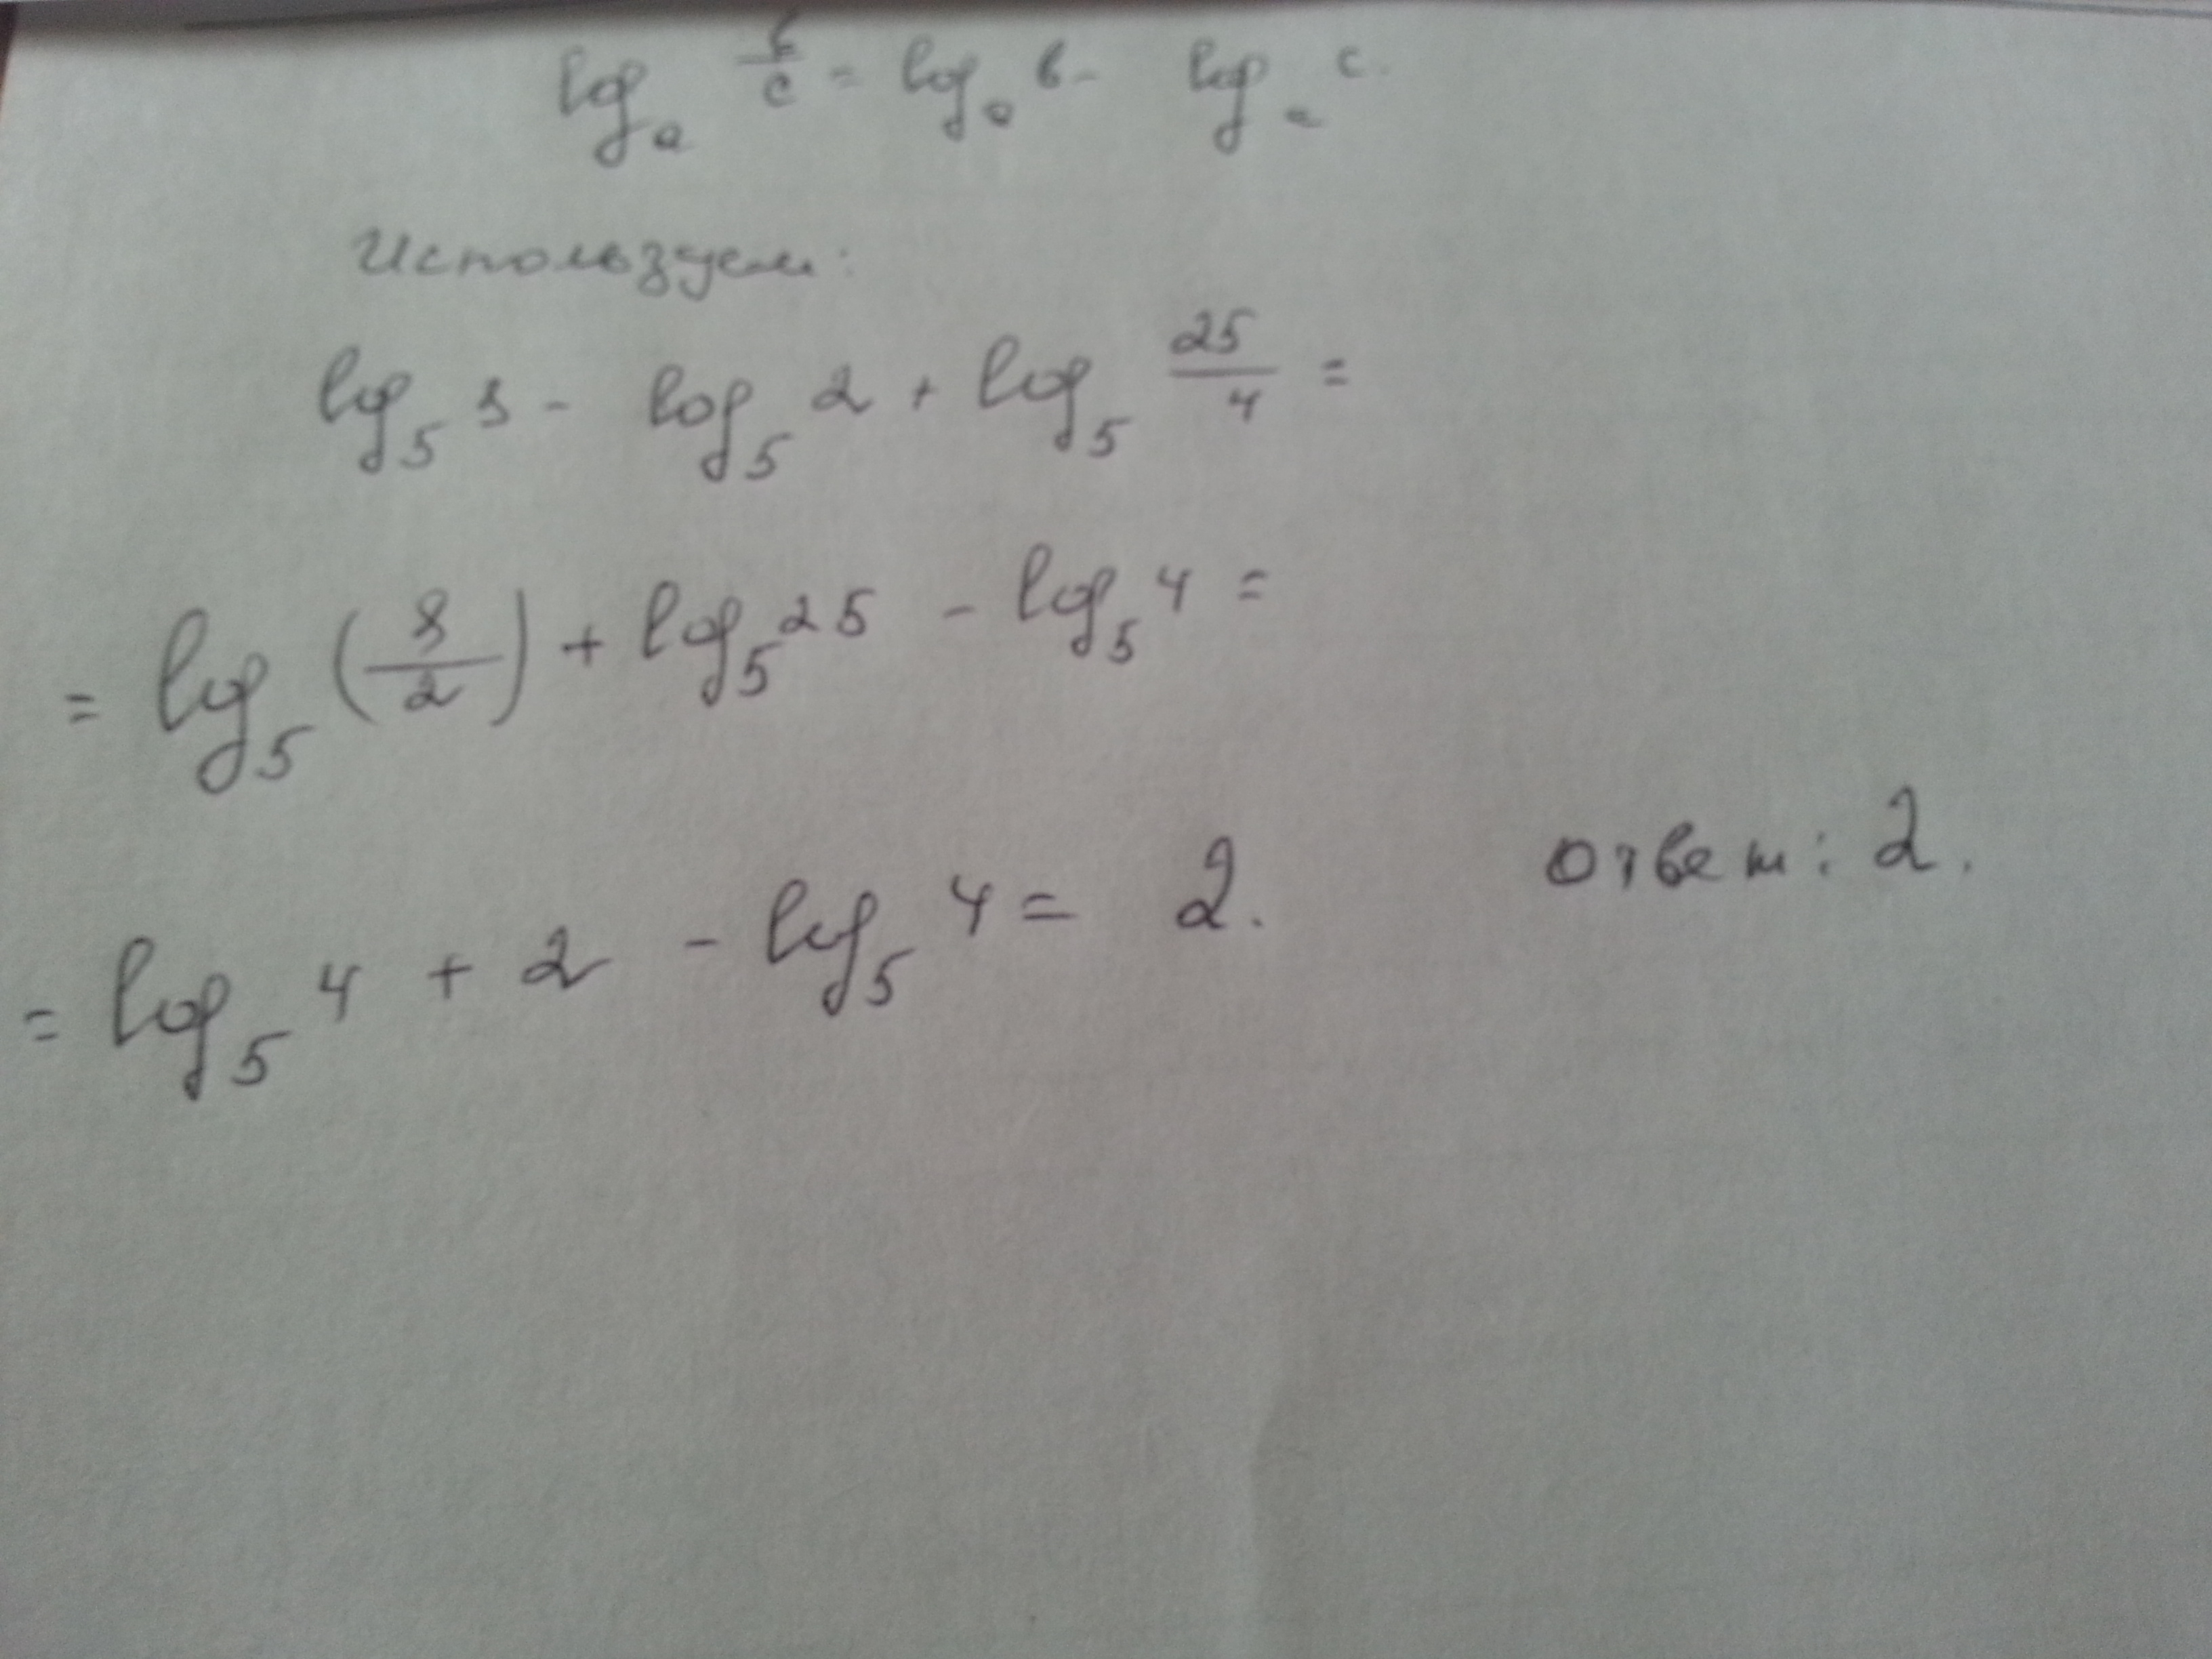 log_a b/c = log_a b - log_a c.
Используем:
log_5 8 - log_5 2 + log_5 25/4 =
= log_5 (8/2) + log_5 25 - log_5 4 =
= log_5 4 + 2 - log_5 4 = 2.
Ответ: 2.